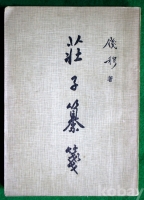 莊子纂箋
錢穆著
kobay